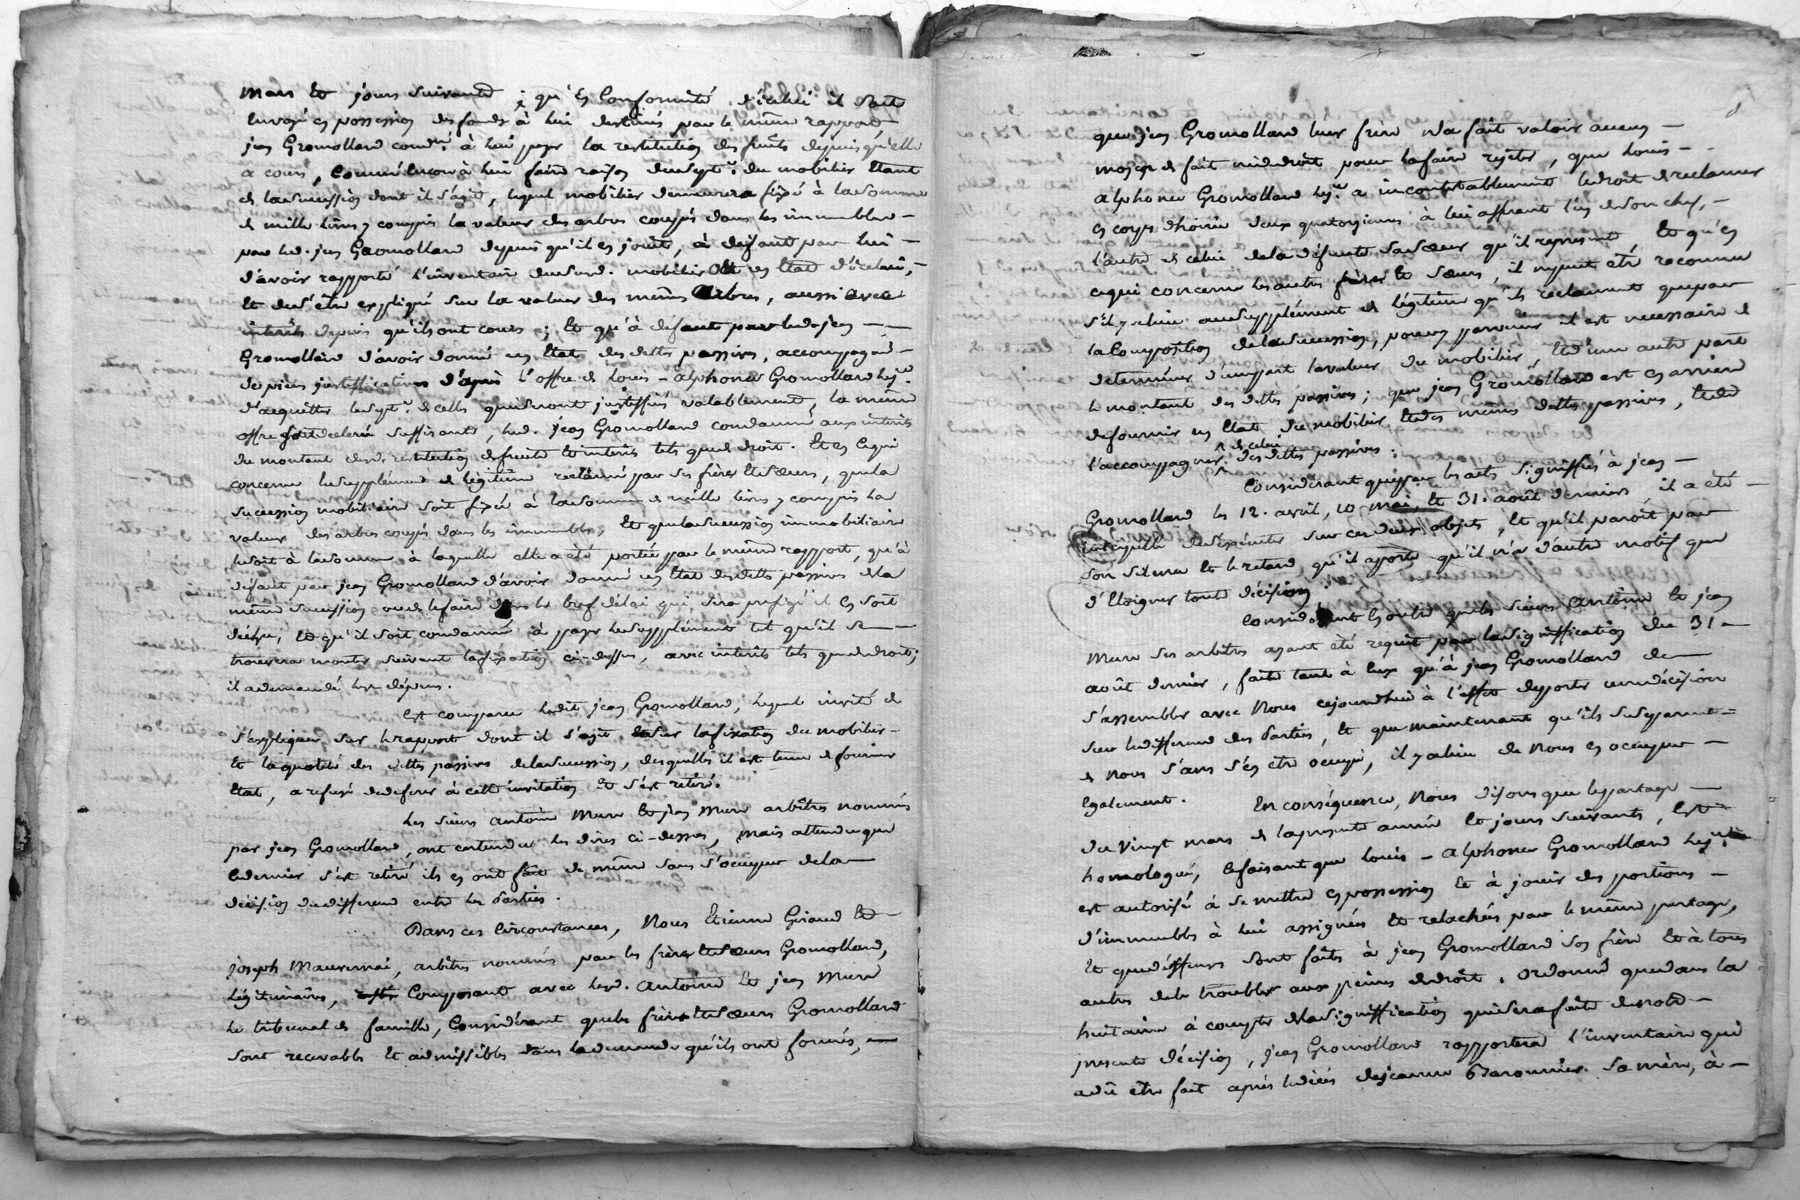 mars et jours suivants ; qu'en Conformité d'icelui il soit
envoyé en possession des fonds à lui destinés par le même rapport
jean Gromolland cond.é à lui payer la restitution des fruits depuis qu'elle
a cours, Comme encore à lui faire raison du sept.e du mobilier Etant
de la succession dont il s'agit, lequel mobilier demeurera fixé à la somme
de mille livres y compris la valeur des arbres coupés dans les immeubles
par led. jean Gromolland depuis qu'il en jouit, à défaut par lui
d'avoir rapporté l'inventaire dud. mobilier et un Etat d'icelui,
Et de s'être expliqué sur la valeur des mêmes Arbres, aussi avec
intérêts depuis qu'ils ont cours ; Et qu'à défaut par led. jean
Gromolland d'avoir donné un Etat des dettes passives, accompagné
de pièces justifficatives d'après l'offre de louis-alphonce Gromolland
d'acquitter le sept.e de celles qui seront justiffiées valablement, la même
offre soit déclarée suffisante, led. jean Gromolland condamné aux intérêts
du montant desd. restitution de fruits et intérêts tels que de droit. Et en ce qui
concerne le supplément de légitime réclamé par ses frères Et sœurs, que la
succession mobiliaire soit fixée à la somme de mille livres y compris la
valeur des arbres coupés dans les immeubles, Et que la succession immobiliaire
le soit à la somme à laquelle elle a été portée par le même rapport, qu'à
défaut par jean Gromolland d'avoir donné un Etat des dettes passives de la
même succession ou de le faire dans le bref délai qui sera prefigé il en soit
déchu, Et qu'il soit condamné à payer le supplément tel qu'il se
trouvera monter suivant la fixation ci-dessus, avec intérêts tels que de droit ;
il a demandé les dépens.
Est comparu ledit jean Gromolland, lequel invité de
s'expliquer sur le rapport dont il s'agit et sur la fixation du mobilier
Et la quotité des dettes passives de la succession, desquelles il est tenu de fournir
Etat, a refusé de déférer à cette invitation Et s'est retiré.
Les sieurs antoine Mure Et jean Mure arbitres nommés
par jean Gromolland, ont entendu les dires ci-dessus, Mais attendu que
ce dernier s'est retiré ils en ont fait de même sans s'occuper de la
décision du différend entre les Parties.
Dans ces Circonstances, Nous Etienne Giroud Et
joseph Mauvernai, arbitres nommés par les frères Et sœurs Gromolland,
légitimaires, Composant avec les d. antoine Et jean Mure
le tribunal de famille, Considérant que les frères Et sœurs Gromolland
sont recevables Et admissibles dans la demande qu'ils ont formée,
que jean Gromolland leur frère n'a fait valoir aucun
moyen de fait ni de droit pour la faire rejetter, que louis
alphonce Gromolland a incontestablement le droit de réclamer
en corps d'hoirie deux quatorziemes à lui afférant l'un de son chef,
l'autre de celui de la défunte sa sœur qu'il représente, Et qu'en
ce qui concerne les autres frères Et sœurs, il ne peut etre reconnu
s'il y a lieu au supplément de légitime qu'ils réclament que par
la Composition de la succession, pour y parvenir il est necessaire de
déterminer d'une part la valeur du mobilier, Et d'une autre part
le montant des dettes passives ; que jean Gromolland est en arrière
de fournir un Etat du mobilier Et des mêmes dettes passives, Et de
l'accompagner de celui des dettes passives.
Considérant que par les actes signiffiés à jean
Gromolland les 12. avril, 10 mai, Et 31. août derniers, il a été
interpellé de s'expliquer sur ces deux objets, Et qu'il paroit par
son silence Et le retard qu'il apporte qu'il n'a d'autre motif que
d'Eloigner toute décision.
Considérant Enfin que les sieurs Antoine Et jean
Mure ses arbitres ayant été requis par la signiffication du 31
août dernier, faite tant à Eux qu'à jean Gromolland de
s'assembler avec Nous cejourd'hui à l'effet de porter une décision
sur le différend des Parties, Et que maintenant qu'ils se séparent
de Nous sans s'en etre occupé, il y a lieu de Nous en occuper
Egalement.
En conséquence, Nous disons que le partage
du vingt mars de la présente année Et jours suivants, Est
homologué, ce faisant que louis-alphonce Gromolland
est autorisé à se mettre en possession Et à jouir des portions
d'immeubles à lui assignées Et relachées par le même partage,
Et que défenses sont faites à jean Gromolland son frère Et à tous
autres de le troubler aux peines de droit. Ordonné que dans la
huitaine à compter de la signiffication qui sera faite de notre
présente décision, jean Gromolland rapportera l'inventaire qui
a dû être fait après le décès de jeanne Baronnier sa mère, à